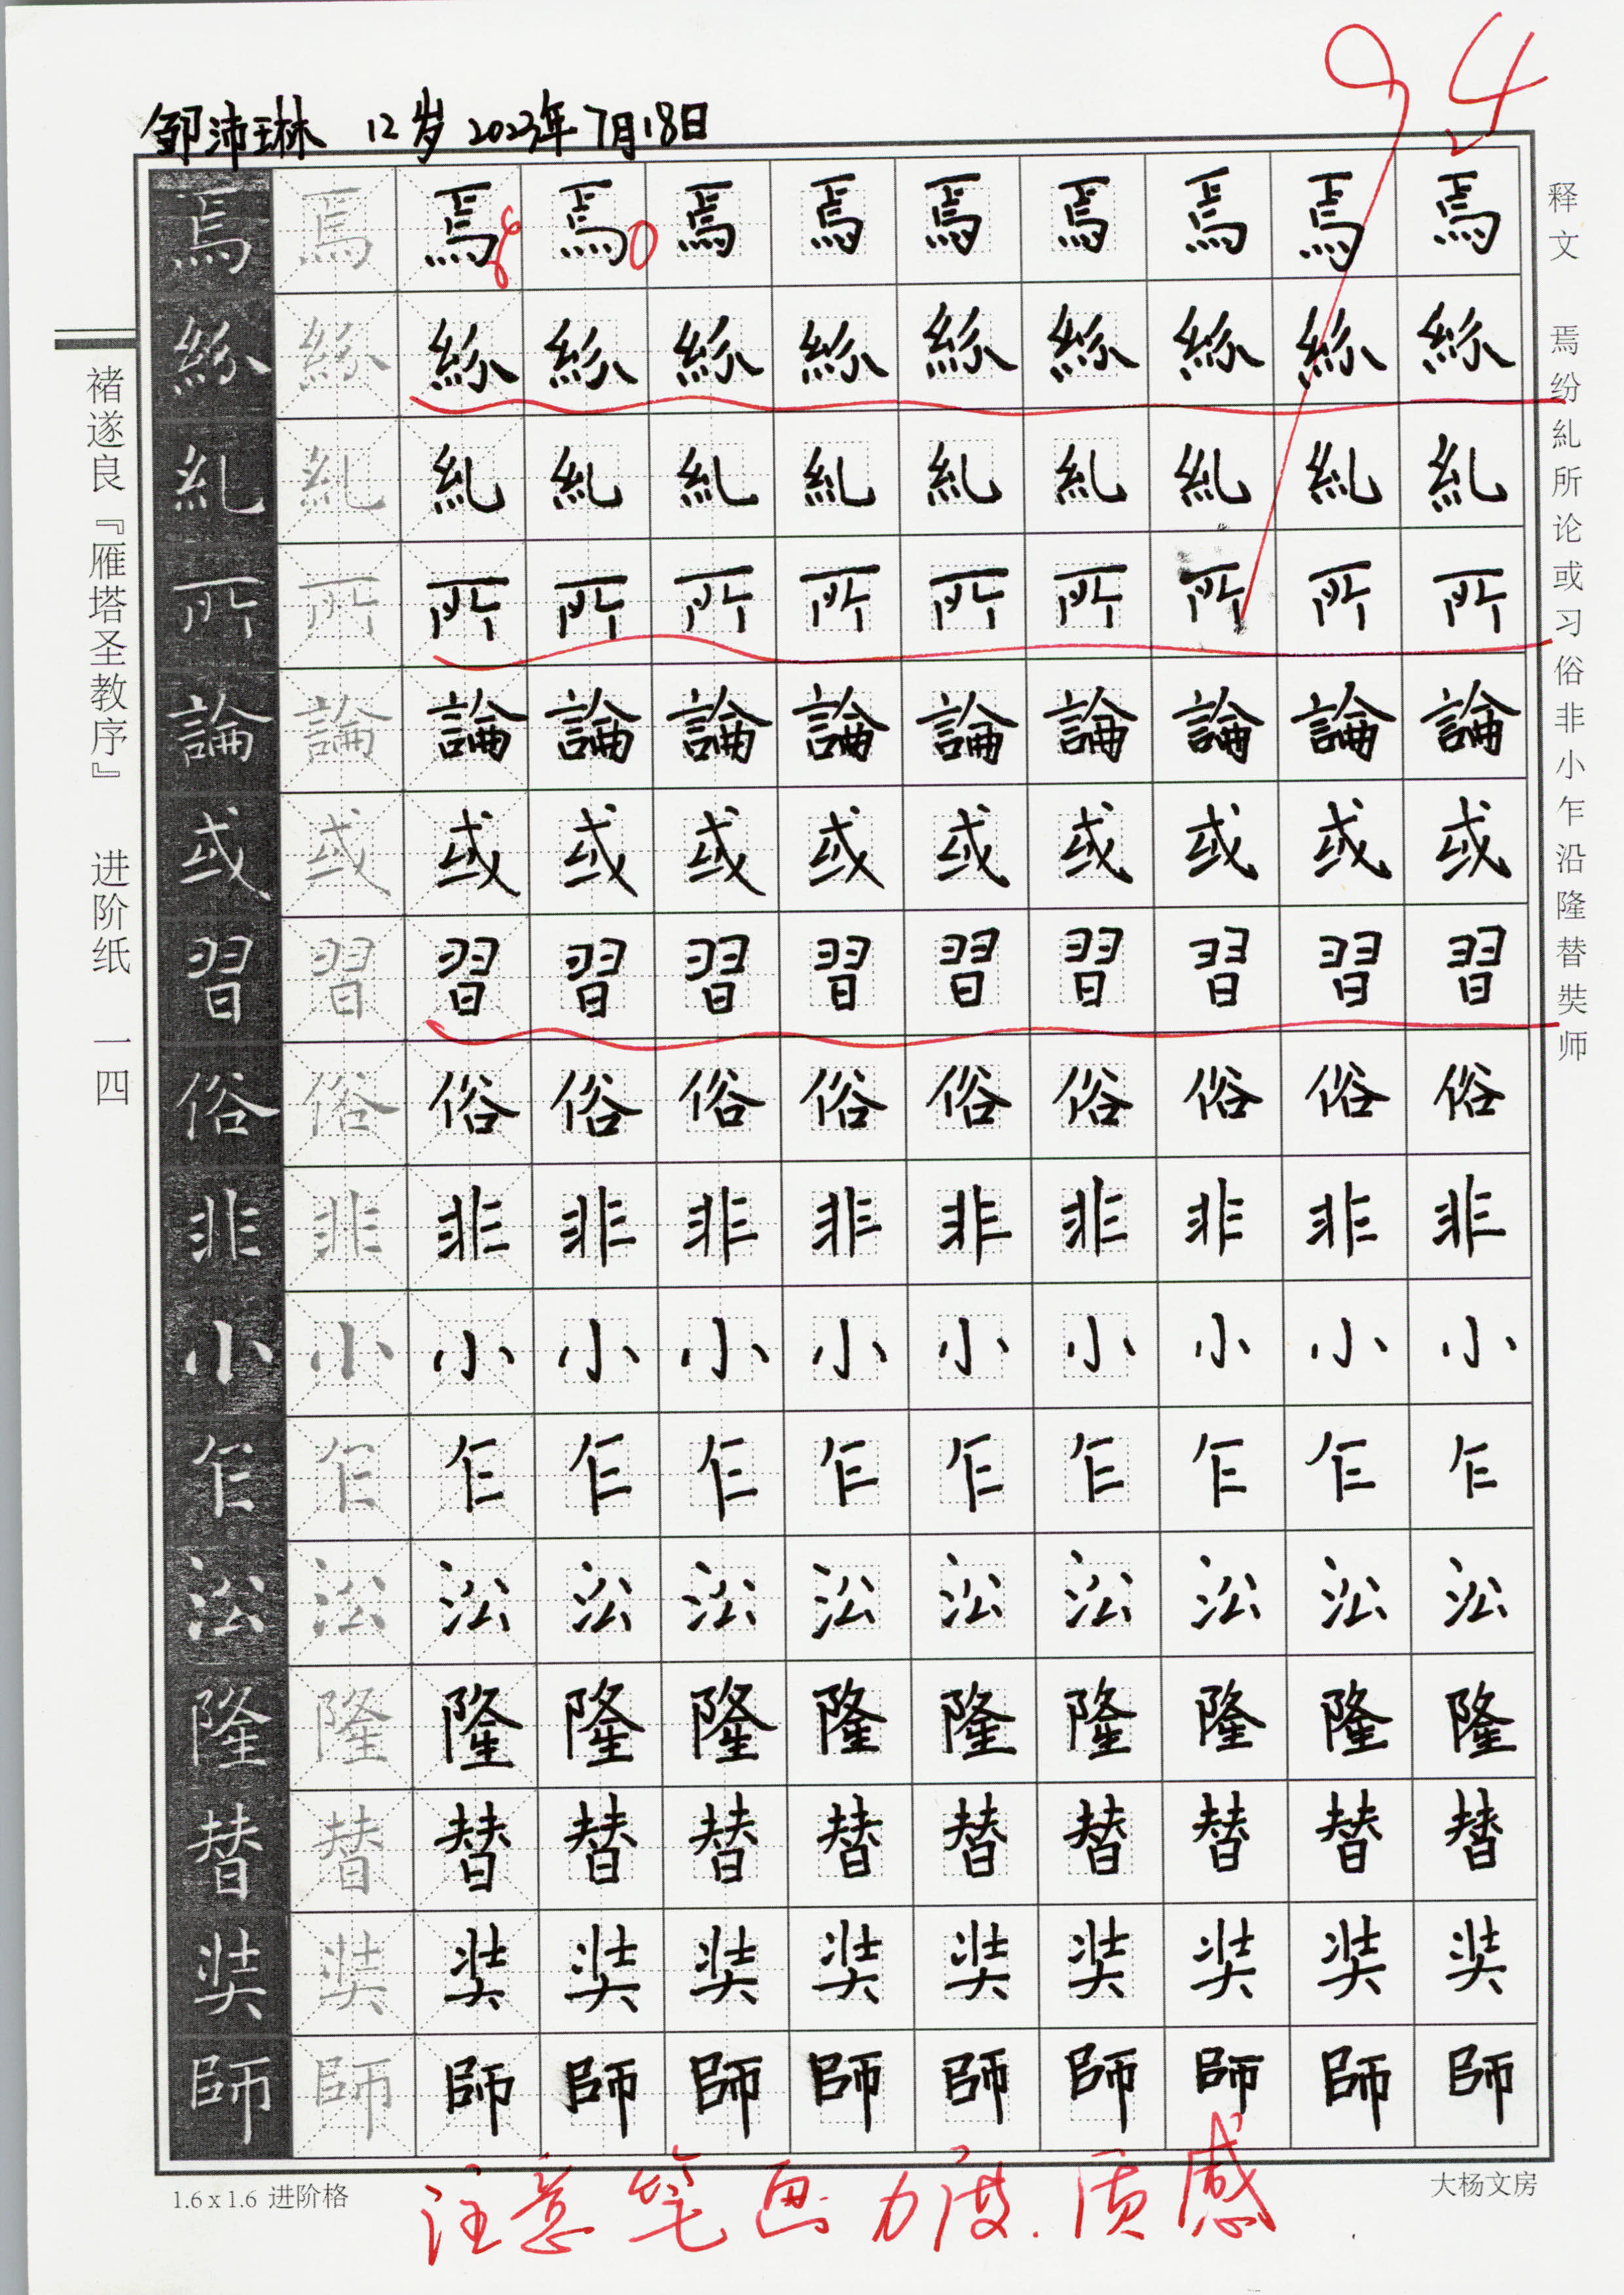 邹沛琳 12岁 2023年7月18日
94
褚遂良『雁塔圣教序』 进阶纸 一四
焉焉焉焉焉焉焉焉焉焉焉
80
紛紛紛紛紛紛紛紛紛紛紛
糺糺糺糺糺糺糺糺糺糺糺
所所所所所所所所所所所
論論論論論論論論論論論
或或或或或或或或或或或
習習習習習習習習習習習
俗俗俗俗俗俗俗俗俗俗俗
非非非非非非非非非非非
小小小小小小小小小小小
乍乍乍乍乍乍乍乍乍乍乍
㳂㳂㳂㳂㳂㳂㳂㳂㳂㳂㳂
隆隆隆隆隆隆隆隆隆隆隆
替替替替替替替替替替替
奘奘奘奘奘奘奘奘奘奘奘
師師師師師師師師師師師
释文 焉纷糺所论或习俗非小乍沿隆替奘师
注意笔画力度.质感
1.6 x 1.6 进阶格
大杨文房